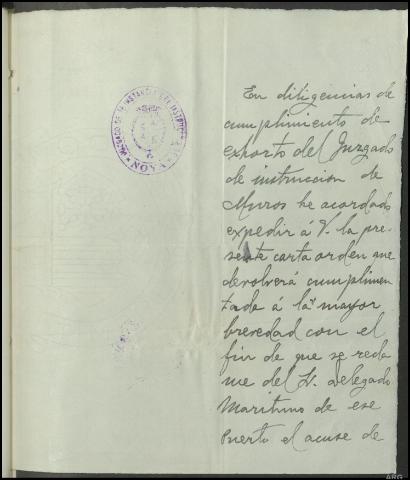 JUZGADO DE 1ª INSTANCIA É INSTRUCCIÓN
En diligencias de
cumplimiento de
exhorto del Juzgado
de instruccion de
Muros he acordado
expedir á V. la pre-
sente carta orden que
devolverá cumplimen
tada á la mayor
brevedad con el
fin de que se recla
me del Sr. delegado
Maritimo de ese
Puerto el acuse de
ARG